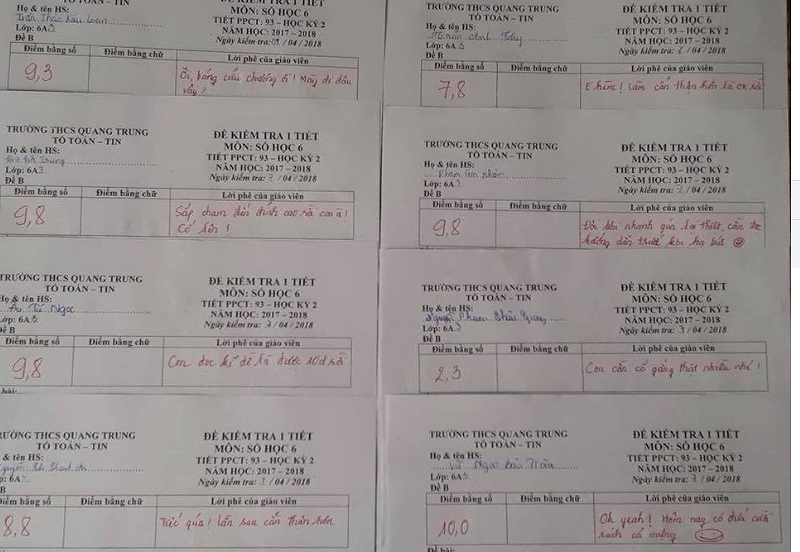 Họ & tên HS:
Lớp: 6A3
Đề B
ĐỀ KIỂM TRA 1 TIẾT
MÔN: SỐ HỌC 6
TIẾT PPCT: 93 – HỌC KỲ 2
NĂM HỌC: 2017 – 2018
Ngày kiểm tra: / 04 / 2018
Điểm bằng số Điểm bằng chữ Lời phê của giáo viên
9,3
Ôi, bảng cửu chương ơi! Mày đi đâu
vậy?
TRƯỜNG THCS QUANG TRUNG
TỔ TOÁN – TIN
Họ & tên HS:
Lớp: 6A3
Đề B
ĐỀ KIỂM TRA 1 TIẾT
MÔN: SỐ HỌC 6
TIẾT PPCT: 93 – HỌC KỲ 2
NĂM HỌC: 2017 – 2018
Ngày kiểm tra: / 04 / 2018
Điểm bằng số Điểm bằng chữ Lời phê của giáo viên
7,8
E hèm! Làm cẩn thận hơn là ok
TRƯỜNG THCS QUANG TRUNG
TỔ TOÁN – TIN
Họ & tên HS:
Lớp: 6A3
Đề B
ĐỀ KIỂM TRA 1 TIẾT
MÔN: SỐ HỌC 6
TIẾT PPCT: 93 – HỌC KỲ 2
NĂM HỌC: 2017 – 2018
Ngày kiểm tra: / 04 / 2018
Điểm bằng số Điểm bằng chữ Lời phê của giáo viên
9,8
Sắp chạm đến đỉnh cao rồi con ạ!
Cố lên!
TRƯỜNG THCS QUANG TRUNG
TỔ TOÁN – TIN
Họ & tên HS:
Lớp: 6A3
Đề B
ĐỀ KIỂM TRA 1 TIẾT
MÔN: SỐ HỌC 6
TIẾT PPCT: 93 – HỌC KỲ 2
NĂM HỌC: 2017 – 2018
Ngày kiểm tra: / 04 / 2018
Điểm bằng số Điểm bằng chữ Lời phê của giáo viên
9,8
Đôi khi nhanh quá lại thiệt, cần
hướng dẫn trước khi hạ bút
TRƯỜNG THCS QUANG TRUNG
TỔ TOÁN – TIN
Họ & tên HS:
Lớp: 6A3
Đề B
ĐỀ KIỂM TRA 1 TIẾT
MÔN: SỐ HỌC 6
TIẾT PPCT: 93 – HỌC KỲ 2
NĂM HỌC: 2017 – 2018
Ngày kiểm tra: 3 / 04 / 2018
Điểm bằng số Điểm bằng chữ Lời phê của giáo viên
9,8
Con đọc kĩ đề là được 10đ rồi
TRƯỜNG THCS QUANG TRUNG
TỔ TOÁN – TIN
Họ & tên HS:
Lớp: 6A3
Đề B
ĐỀ KIỂM TRA 1 TIẾT
MÔN: SỐ HỌC 6
TIẾT PPCT: 93 – HỌC KỲ 2
NĂM HỌC: 2017 – 2018
Ngày kiểm tra: 3 / 04 / 2018
Điểm bằng số Điểm bằng chữ Lời phê của giáo viên
2,3
Con cần cố gắng thật nhiều nhé!
TRƯỜNG THCS QUANG TRUNG
TỔ TOÁN – TIN
& tên HS:
Lớp: 6A3
Đề B
ĐỀ KIỂM TRA 1 TIẾT
MÔN: SỐ HỌC 6
TIẾT PPCT: 93 – HỌC KỲ 2
NĂM HỌC: 2017 – 2018
Ngày kiểm tra: / 04 / 2018
Điểm bằng số Điểm bằng chữ Lời phê của giáo viên
8,8
Tiếc quá! Lần sau cẩn thận hơn
TRƯỜNG THCS QUANG TRUNG
TỔ TOÁN – TIN
Họ & tên HS:
Lớp: 6A3
Đề B
ĐỀ KIỂM TRA 1 TIẾT
MÔN: SỐ HỌC 6
TIẾT PPCT: 93 – HỌC KỲ 2
NĂM HỌC: 2017 – 2018
Ngày kiểm tra: / 04 / 2018
Điểm bằng số Điểm bằng chữ Lời phê của giáo viên
10,0
Oh yeah! Hôm nay có đứa cười
rách cả miệng